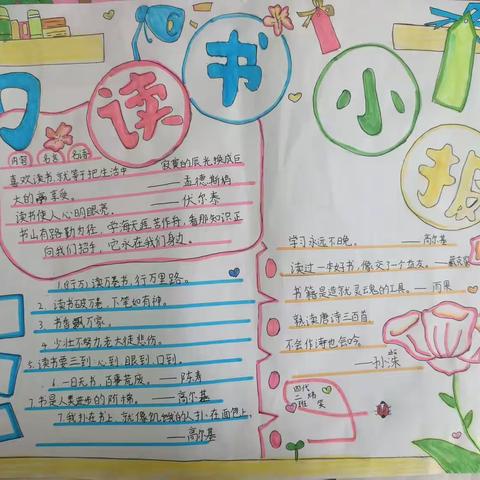 读书小报
内容 名言 名语
喜欢读书,就等于把生活中 寂寞的辰光换成巨
大的享受。 ——孟德斯鸠
读书使人心明眼亮。 ——伏尔泰
书山有路勤为径,学海无涯苦作舟,看那知识正
向我们招手,它永在我们身边。
1.(行万)读万卷书,行万里路。
2.读书破万卷,下笔如有神。
3.书香飘万家。
4.少壮不努力,老大徒悲伤。
5.读书要三到:心到、眼到、口到。
6.一日无书,百事荒废。——陈寿
7.书是人类进步的阶梯。——高尔基
7.我扑在书上,就像饥饿的人扑在面包上。
——高尔基
学习永远不晚。 ——高尔基
读过一本好书,像交了一个益友。——臧克家
书籍是造就灵魂的工具。——雨果
熟读唐诗三百首,
不会作诗也会吟。
——孙洙
四代
二 炜
班 笑